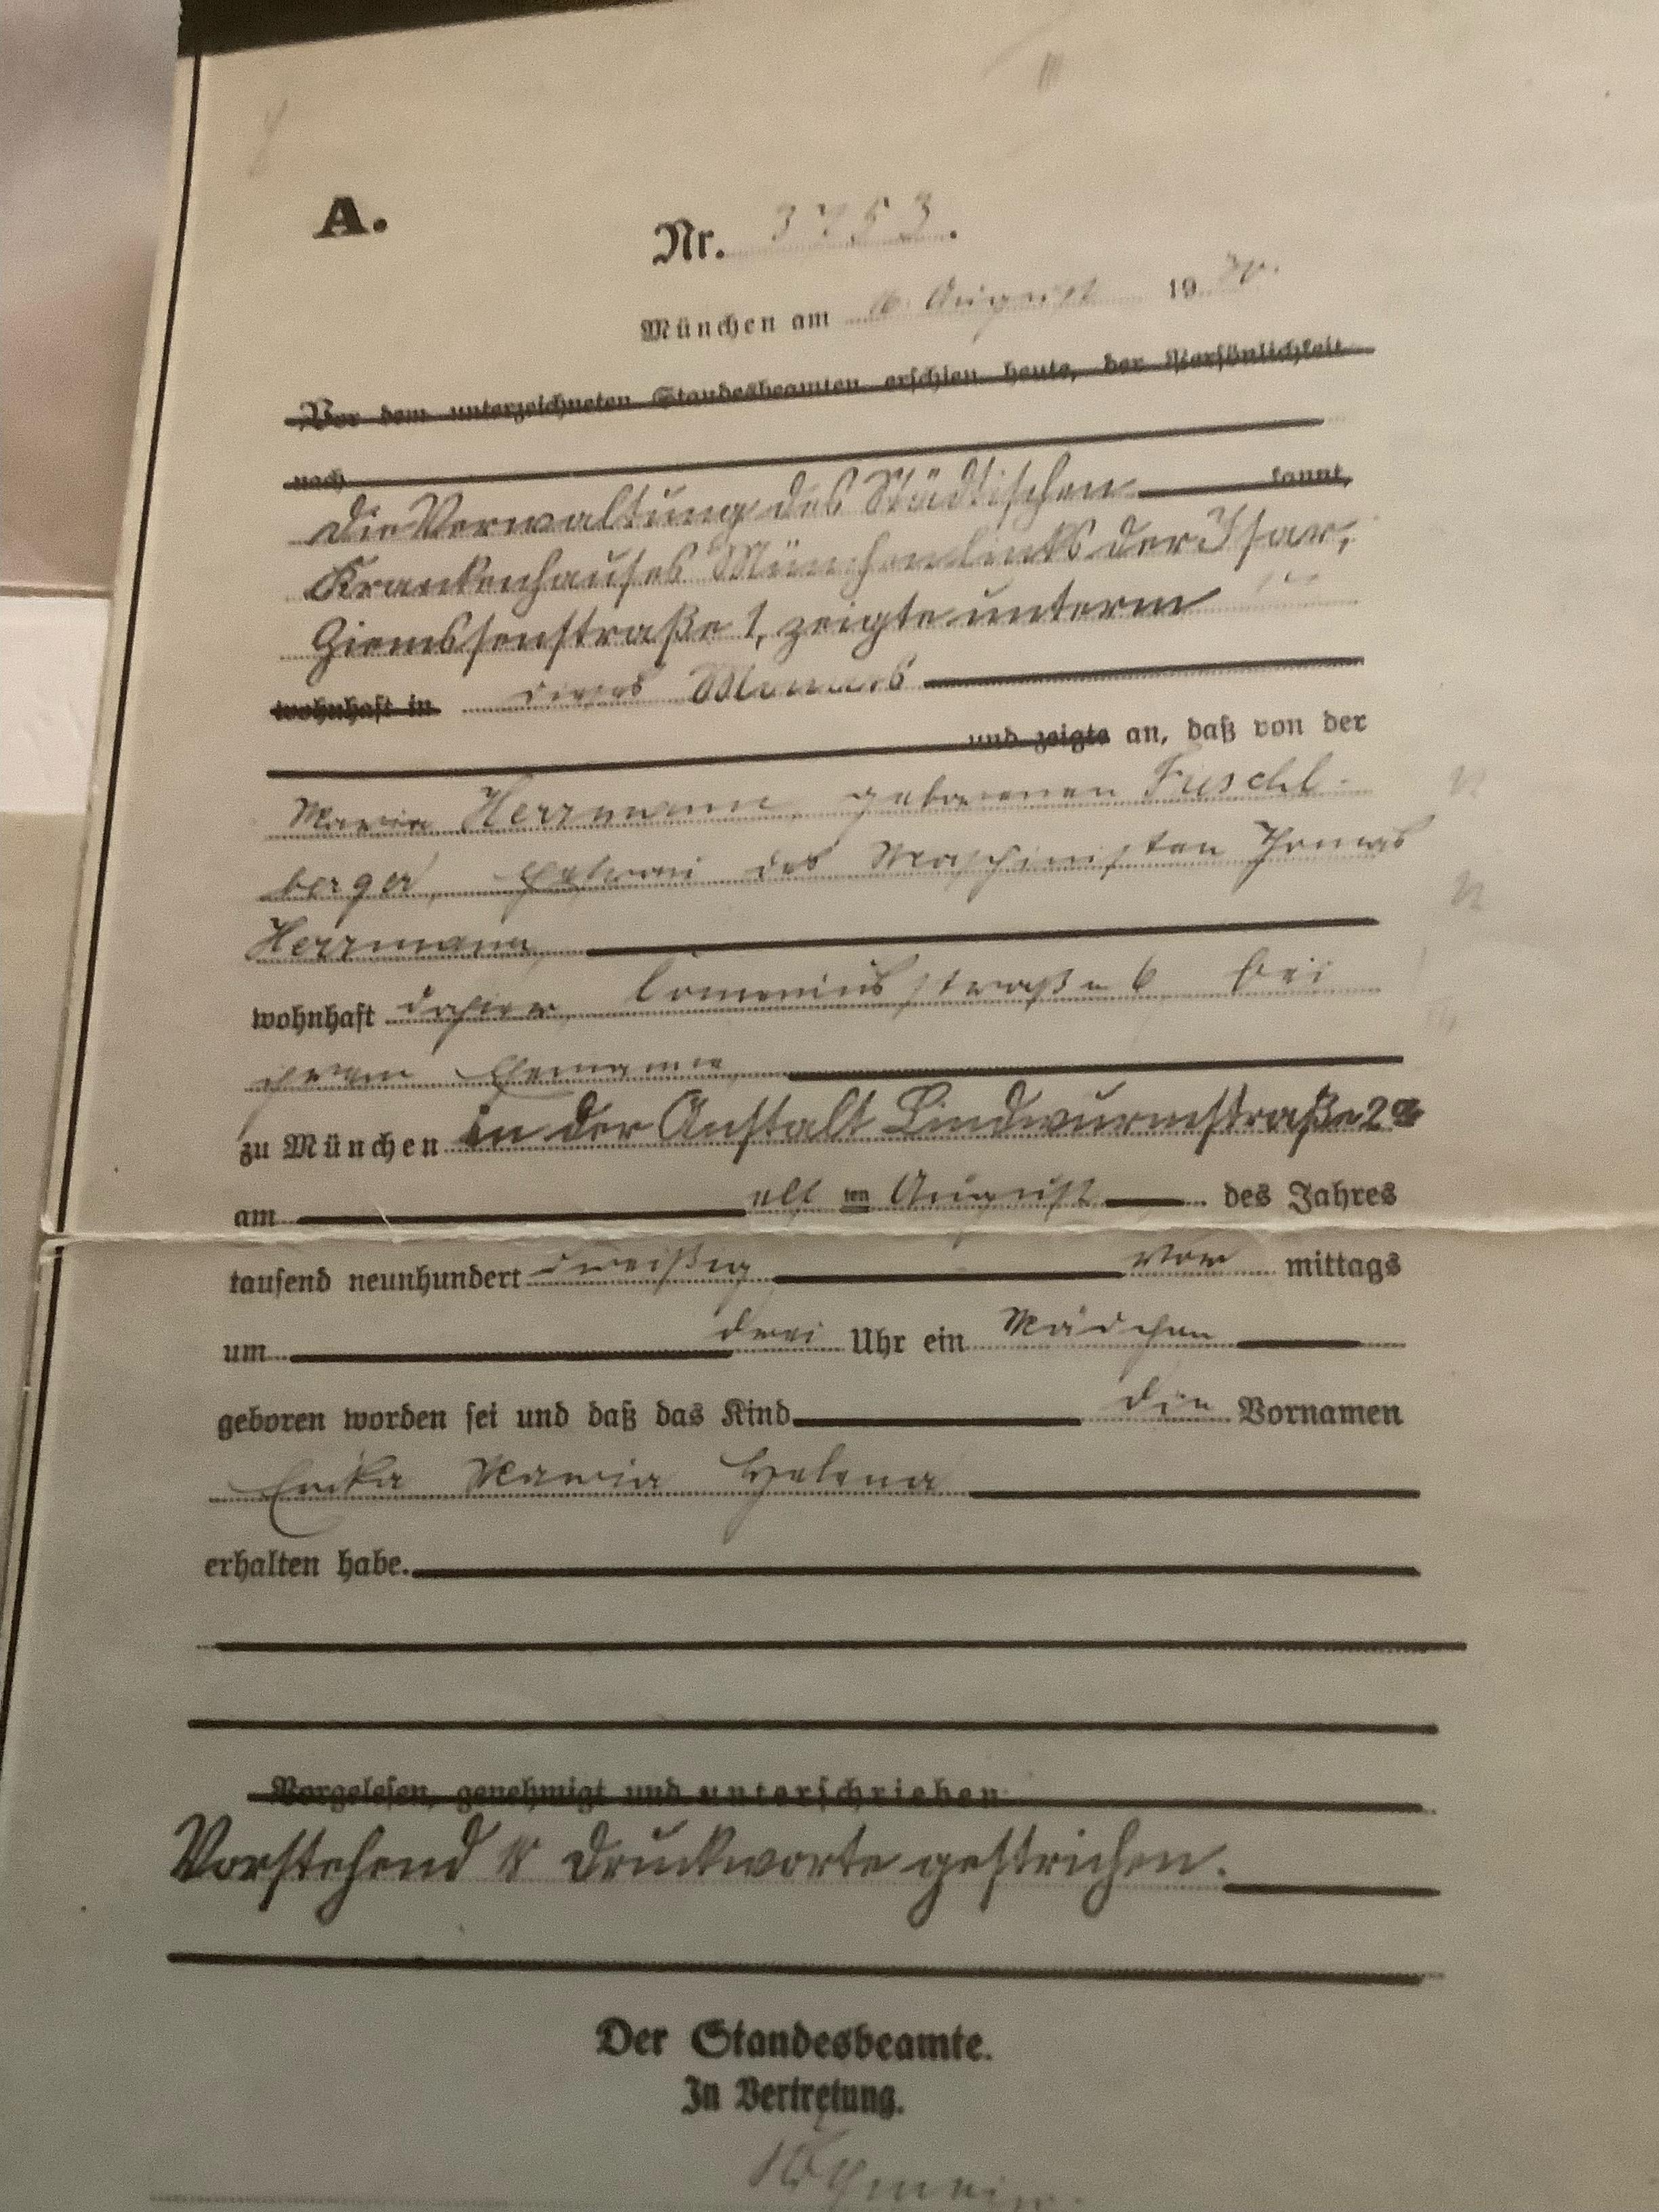 A.
Nr. 3753.
München am 16. August 1930.
Vor dem unterzeichneten Standesbeamten erschien heute, der Persönlichkeit
nach
die Verwaltung des Städtischen kannt,
Krankenhauses München links der Isar,
Ziemssenstraße 1, zeigte unterm
wohnhaft in dieses Monats
und zeigte an, daß von der
Maria Herrmann, geborenen Fuschl-
berger, Ehefrau des Maschinisten Thomas
Herrmann,
wohnhaft dahier, Comeniusstraße 6 bei
ihrem Ehemanne,
zu München in der Anstalt Lindwurmstraße 2a
am elf ten August des Jahres
tausend neunhundert dreißig vor mittags
um drei Uhr ein Mädchen
geboren worden sei und daß das Kind die Vornamen
Erika Maria Helena
erhalten habe.
Vorgelesen, genehmigt und unterschrieben
Vorstehend Druckworte gestrichen.
Der Standesbeamte.
In Vertretung.